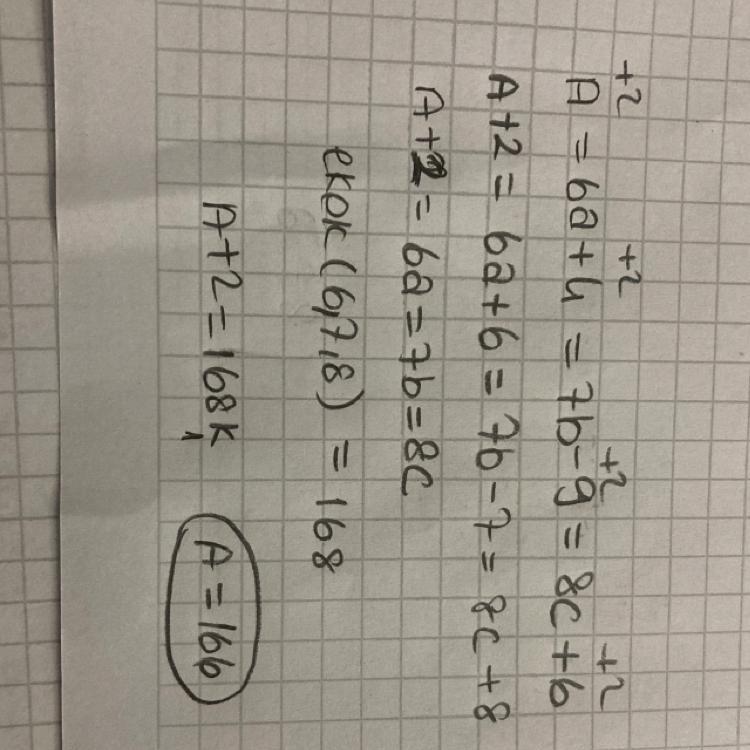 +2 +2 +2 +2
A = 6a+4 = 7b-9 = 8c+6
A+2 = 6a+6 = 7b-7 = 8c+8
A+2 = 6a = 7b = 8c
ekok (6,7,8) = 168
A+2 = 168k
1
A = 166